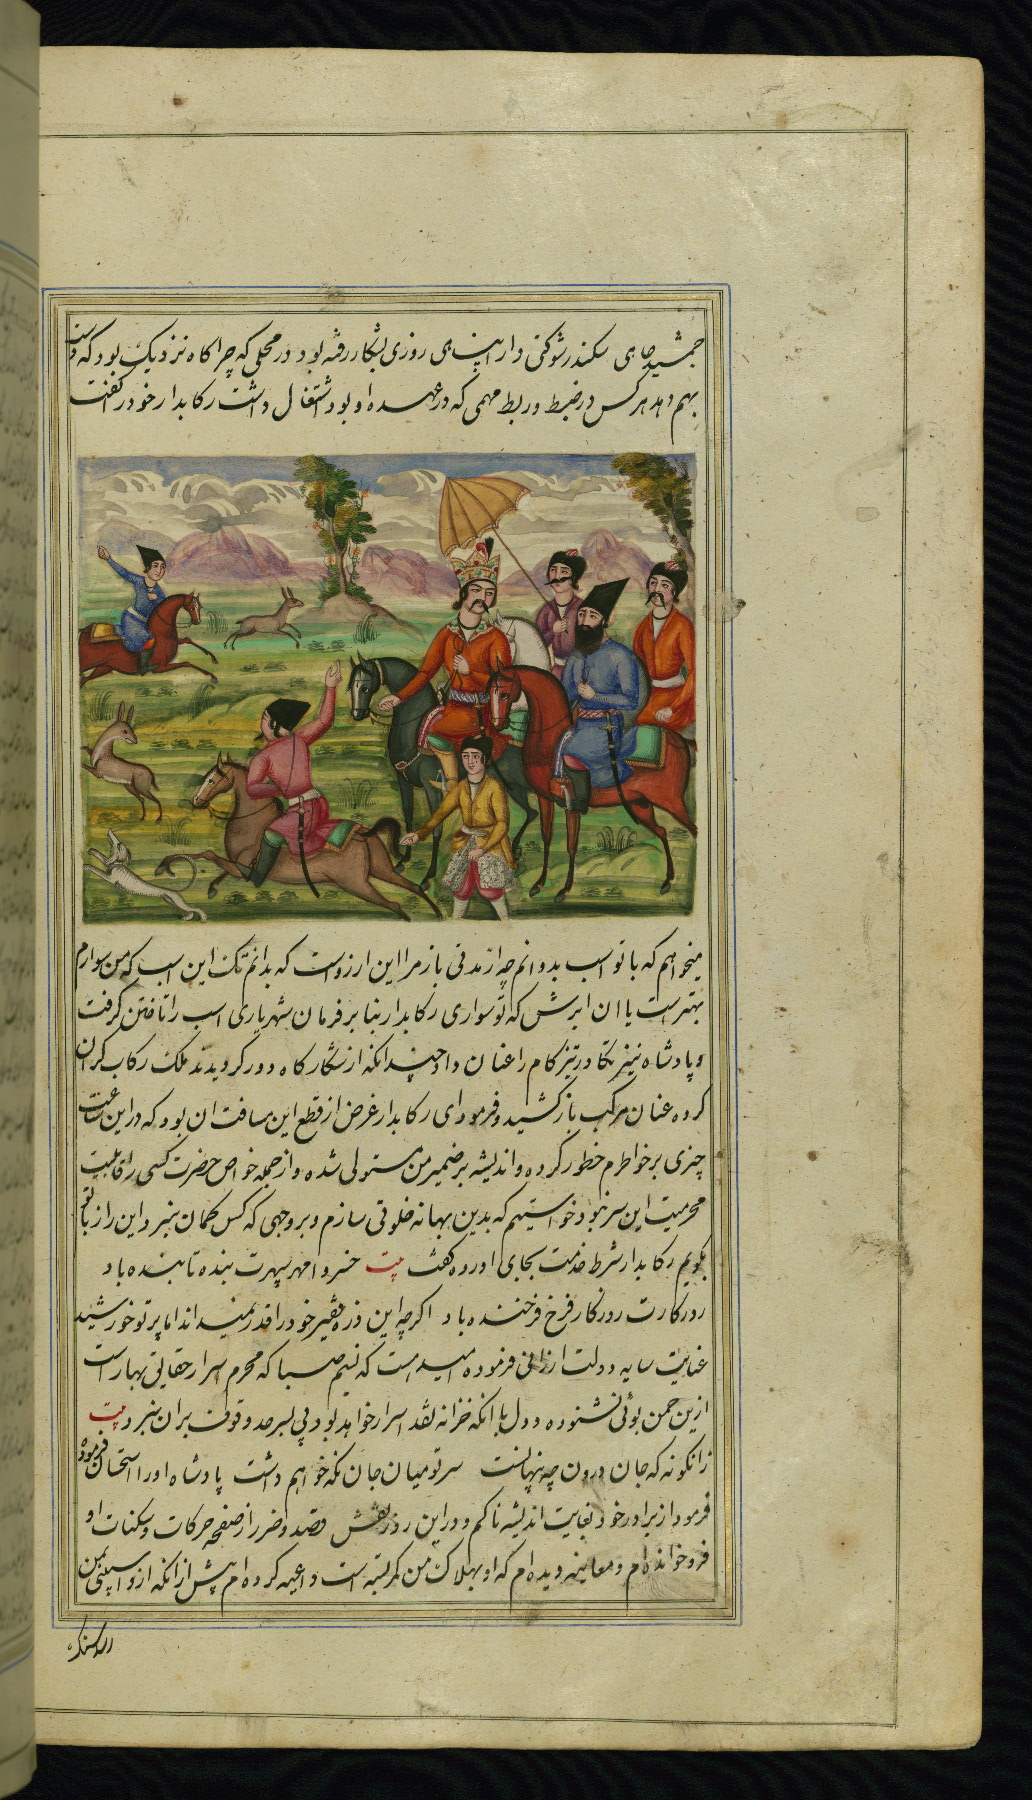 جمشید جای سکندر شوکتی دارا پناهی روزی بشکار رفته بود و در محلی که چراکاه نزدیک بود که دست
بهم دهد هر کس در ضبط و ربط مهمی که در عهده او بود اشتغال داشت رکابدار خود را گفت
میخواهم که با تو اسب بدوانم چه از مدتی باز مرا این ارزوست که بدانم تک این اسب که من سوارم
بهتر است یا ان ابرش که تو سواری رکابدار بنا بر فرمان شهریاری اسب را تافتن گرفت
و پادشاه نیز تکاور تیز کام را عنان داد چندانکه از شکار کاه دور گردیدند ملک رکاب گران
کرده عنان مرکب باز کشید و فرمود ای رکابدار غرض از قطع این مسافت ان بود که در این ساعت
چیزی بر خواطرم خطور کرده و اندیشه بر ضمیر من مستولی شده و از جمله خواص حضرت کسی را قابلیت
محرمیت این سر نبود خواستم که بدین بهانه خلوتی سازم و بر وجهی که کس کمان نبرد این راز با تو
بکویم رکابدار شرط خدمت بجای اورده گفت بیت خسروا مهر سپهرت بنده تابنده باد
روزکارت روزکار فرخ فرخنده باد اکرچه این ذره حقیر خود را قدر نمیداند اما پرتو خورشید
عنایت سایه دولت ارزانی فرموده امید است که نسیم صبا که محرم اسرار حقایق بهار است
ازین چمن بوئی نشنوده و دل با انکه خزانه نقد اسرار خواهد بود پی بسر حد وقوف بران نبرد بیت
زانکونه که جان درون چه پنهانست سر تو میان جان نکه خواهم داشت پادشاه او را استحسان فرموده
فرمود از برادر خود بغایت اندیشه ناکم و در این روز نقش قصد و ضرر از صفحه حرکات و سکنات او
فرو خوانده ام و معاینه دیده ام که او بهلاک من کمر بسته است داعیه کرده ام پیش از انکه از و اسیبی بمن